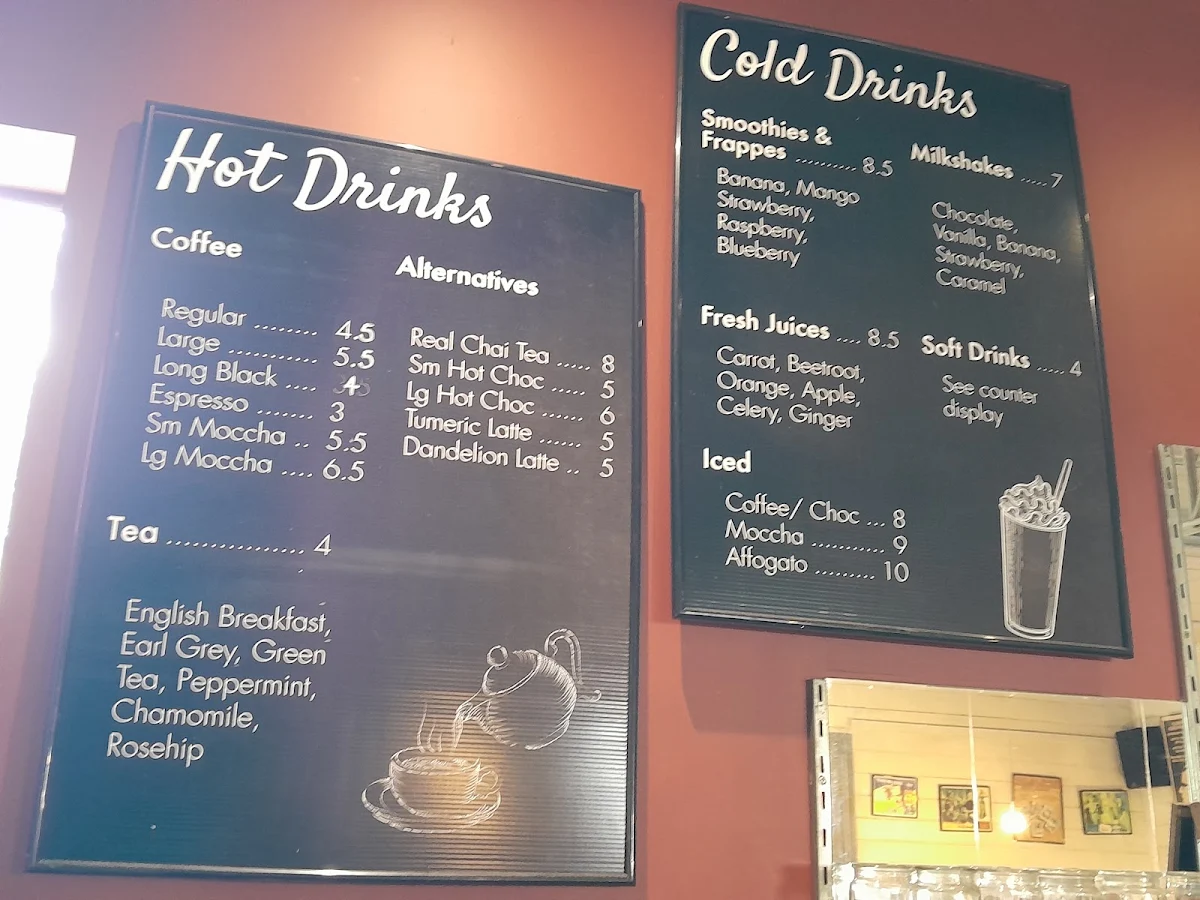 Hot Drinks
Coffee
Regular ........ 4.5
Large ........... 5.5
Long Black .... 4
Espresso ....... 3
Sm Moccha .. 5.5
Lg Moccha .... 6.5
Tea ................. 4
English Breakfast,
Earl Grey, Green
Tea, Peppermint,
Chamomile,
Rosehip
Alternatives
Real Chai Tea ..... 8
Sm Hot Choc ..... 5
Lg Hot Choc ...... 6
Tumeric Latte ...... 5
Dandelion Latte .. 5
Cold Drinks
Smoothies &
Frappes .......... 8.5
Banana, Mango
Strawberry,
Raspberry,
Blueberry
Milkshakes ..... 7
Chocolate,
Vanilla, Banana,
Strawberry,
Caramel
Fresh Juices .... 8.5
Carrot, Beetroot,
Orange, Apple,
Celery, Ginger
Soft Drinks ..... 4
See counter
display
Iced
Coffee/ Choc ... 8
Moccha ........... 9
Affogato ......... 10